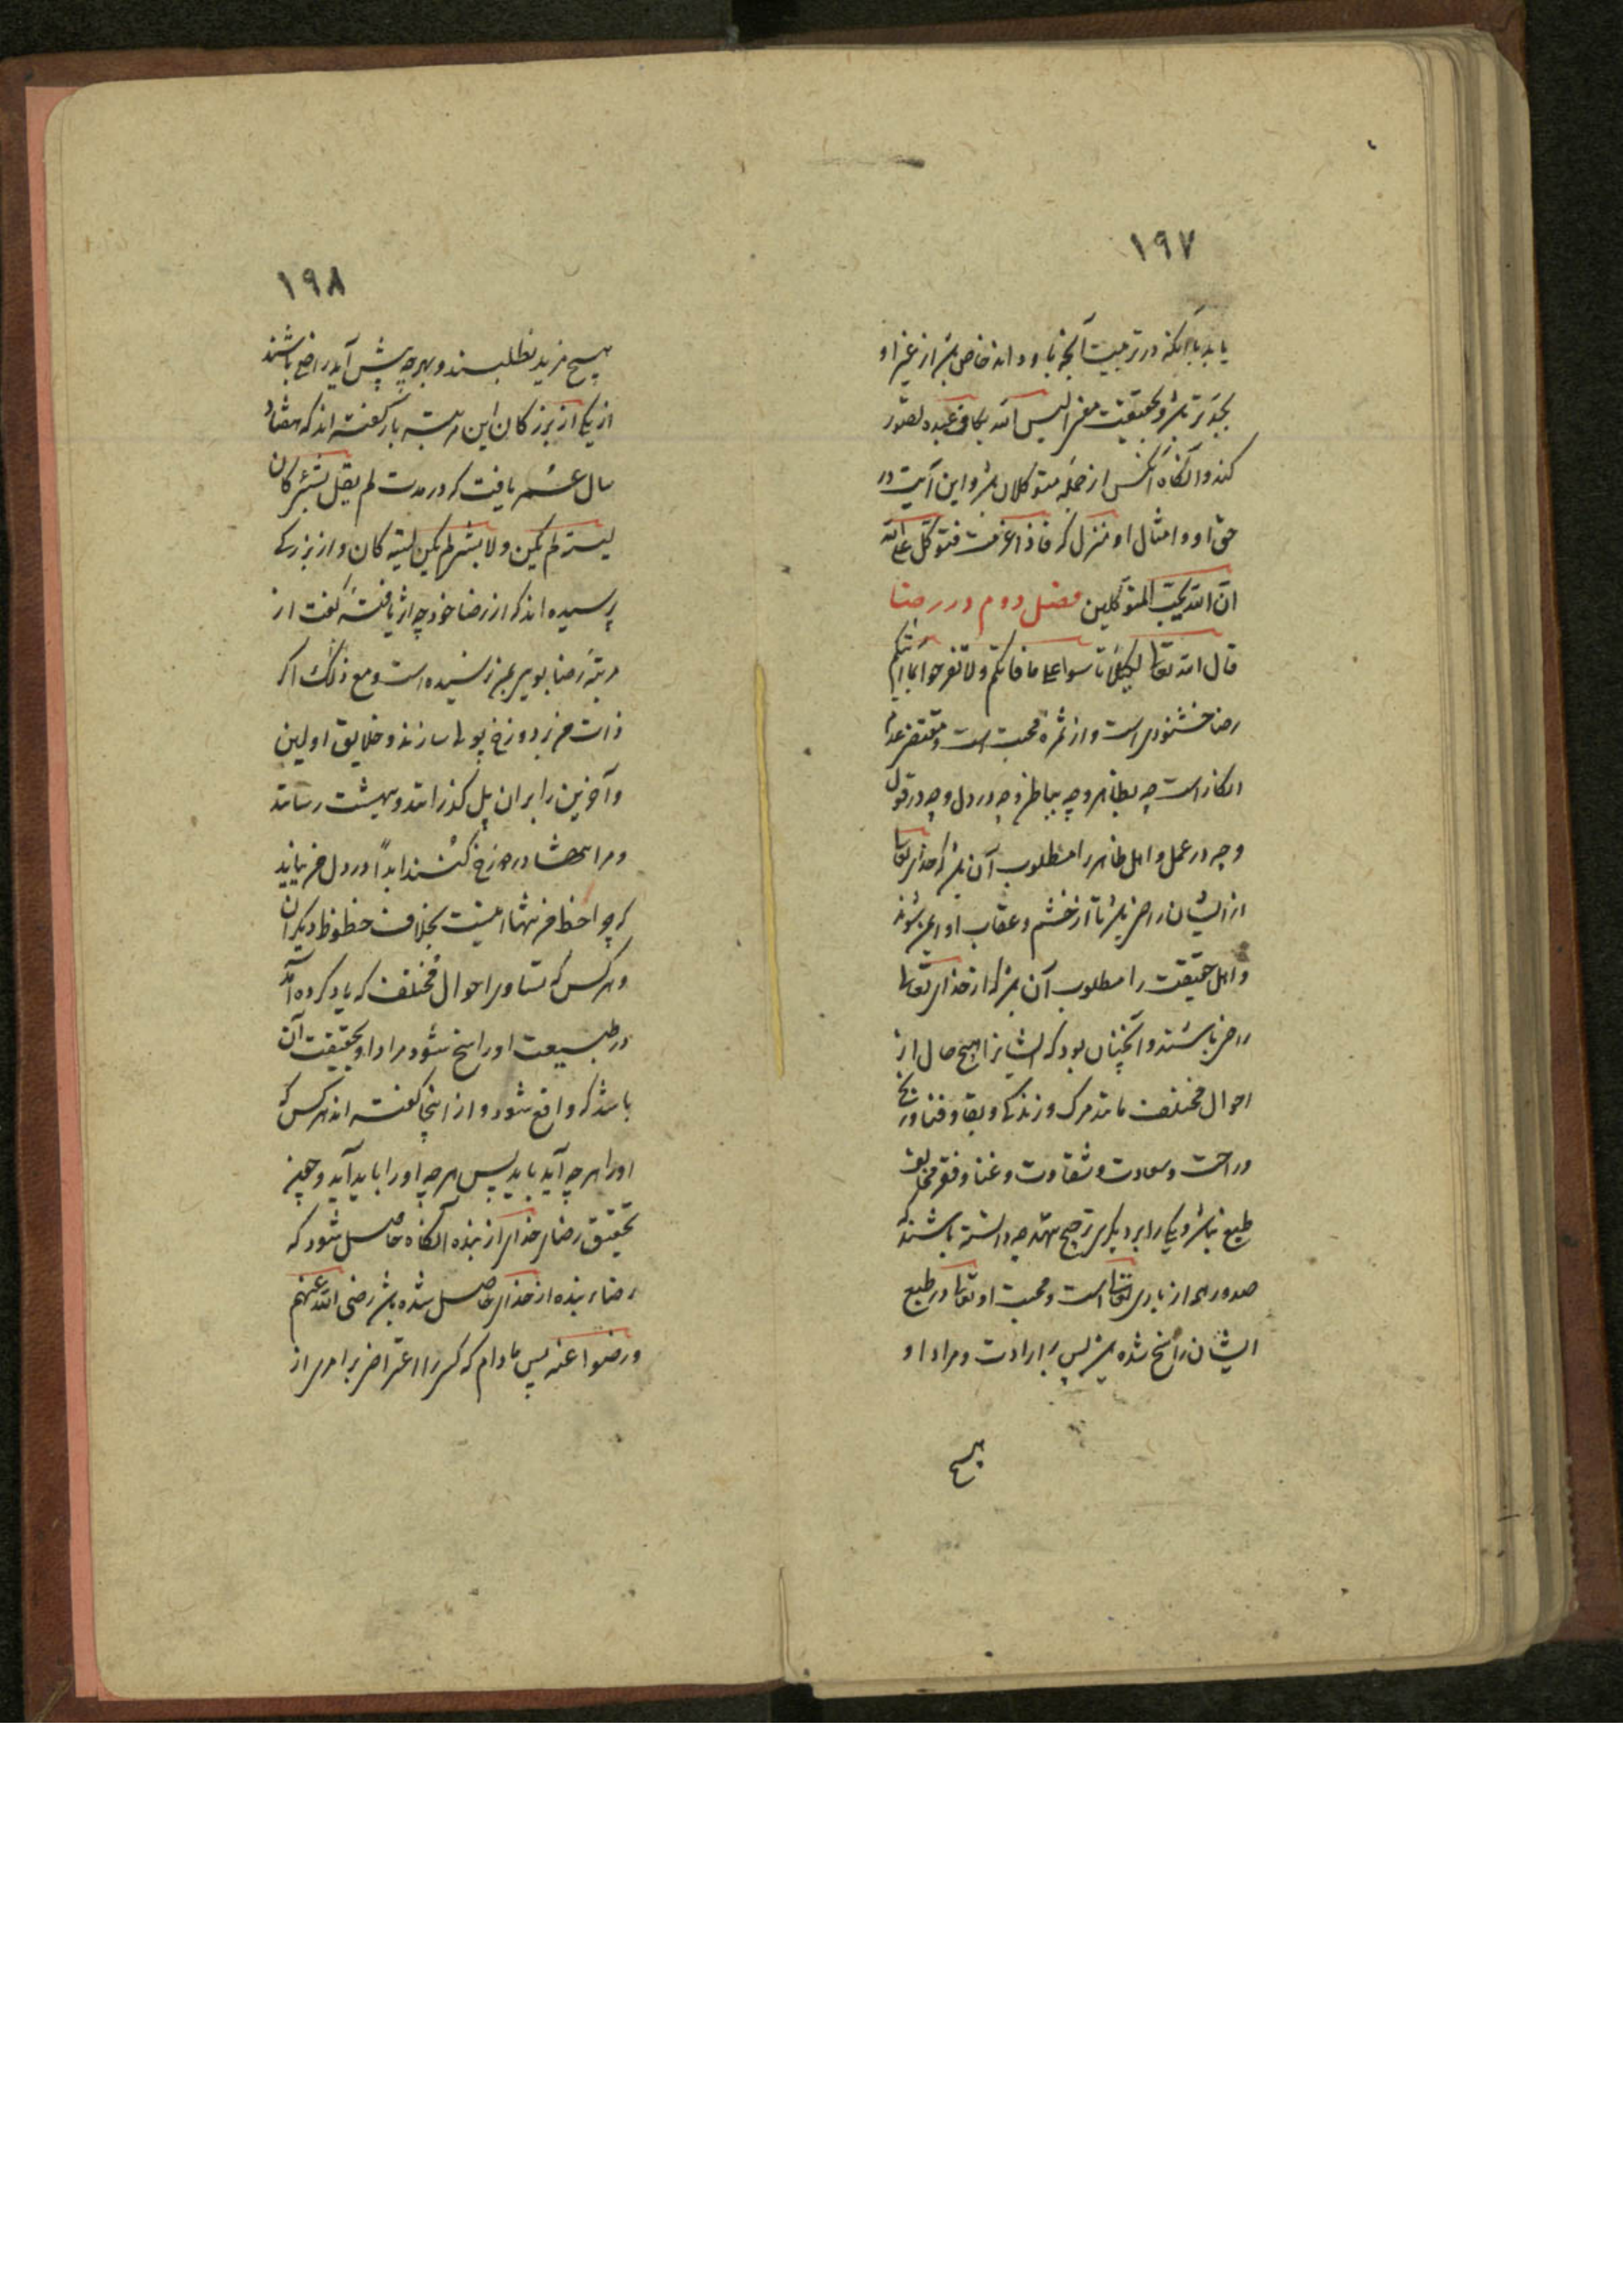 ۱۹۷
یابد با آنکه در تربیت آنچه باو داند خاص باشد از غیر او
بجدتر باشد و بحقیقت معنی الیس الله بکاف عبده تصور
کند و آنگاه آنکس از جمله متوکلان باشد و این آیت در
حق او و امثال او منزل که فاذا عزمت فتوکل علی الله
ان الله یحب المتوکلین فصل دوم در رضا
قال الله تعالی لکیلا تاسوا علی ما فاتکم ولا تفرحوا بما اتیکم
رضا خشنودی است و از ثمره محبت است و مقتضی عدم
انکار است چه بظاهر و چه بباطن و چه در دل و چه در قول
و چه در عمل و اهل ظاهر را مطلوب آن باشد که خدای تعالی
از ایشان راضی باشد تا از خشم و عقاب او ایمن شوند
و اهل حقیقت را مطلوب آن باشد که از خدای تعالی
راضی باشند و آنچنان بود که ایشانرا هیچ حال از
احوال مختلف مانند مرگ و زندگی و بقا و فنا و رنج
و راحت و سعادت و شقاوت و غنا و فقر مخالف
طبع نباشد و یکی را بر دیگری ترجیح ننهند چه دانسته باشند که
صدور همه از باری تعالی است و محبت او تعالی در طبع
ایشان راسخ شده باشد پس بر ارادت و مراد او
هیچ
۱۹۸
هیچ مزید نطلبند و بهرچه پیش آید راضی باشند
از یکی از بزرکان این مرتبه باز گفته اند که هفتاد
سال عمر یافت که در مدت لم یقل لشیء کان
لیته لم یکن ولا لشیء لم یکن لیته کان و از بزرکی
پرسیده اند که از رضا خود چه اثر یافتهٔ گفت از
مرتبهٔ رضا بویی بمن نرسیده است و مع ذلک اگر
از ذات من بر دوزخ پولی سازند و خلایق اولین
و آخرین را بر ان پل گذرانند و ببهشت رسانند
و مرا تنها در دوزخ کنند ابداً در دل من نیاید
که چرا حظ من تنها اینست بخلاف حظوظ دیگران
و هرکس که تساوی احوال مختلف که یاد کرده آمد
در طبیعت او راسخ شود مراد او بحقیقت آن
باشد که واقع شود و از اینجا گفته اند هرکس که
او را هر چه آید باید پس هر چه او را باید آید و چون
تحقیق رضای خدای از بنده آنگاه حاصل شود که
رضای بنده از خدای حاصل شده باشد رضی الله عنهم
و رضوا عنه پس مادام که کسی را اعتراض بر امری از